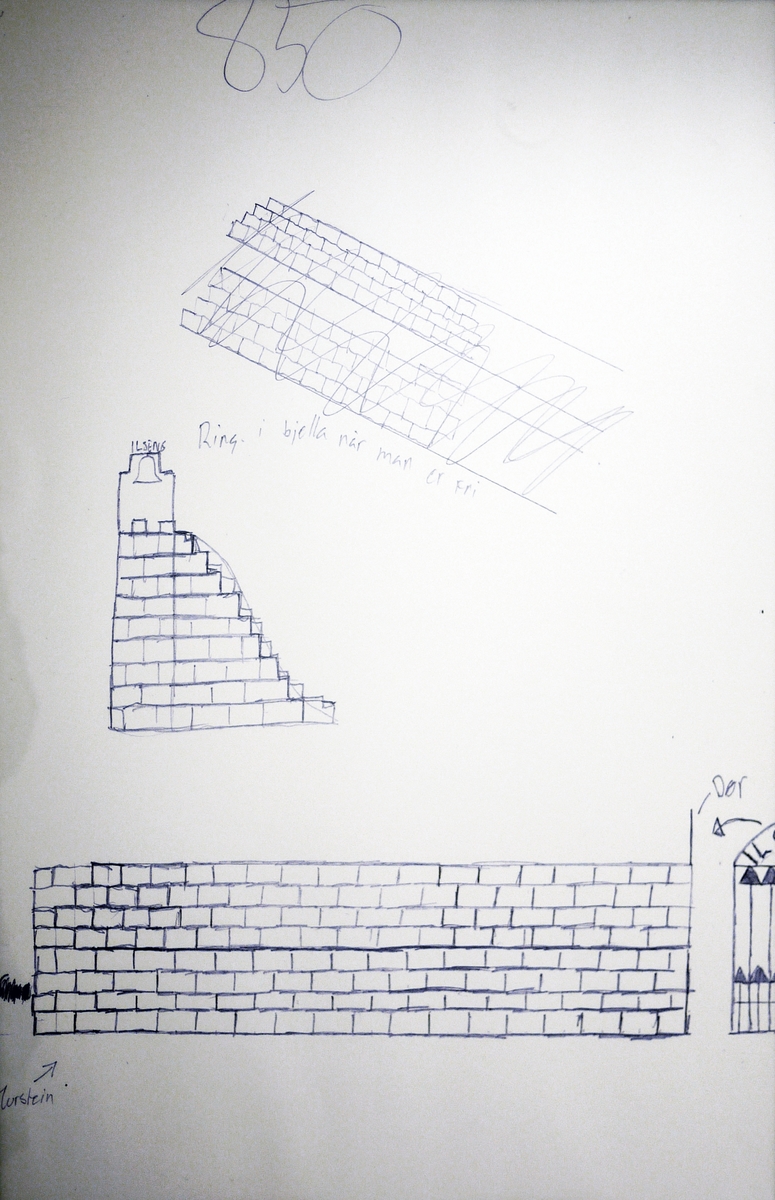 850
ILSENG
Ring. i bjella når man er Fri
Dør
IL